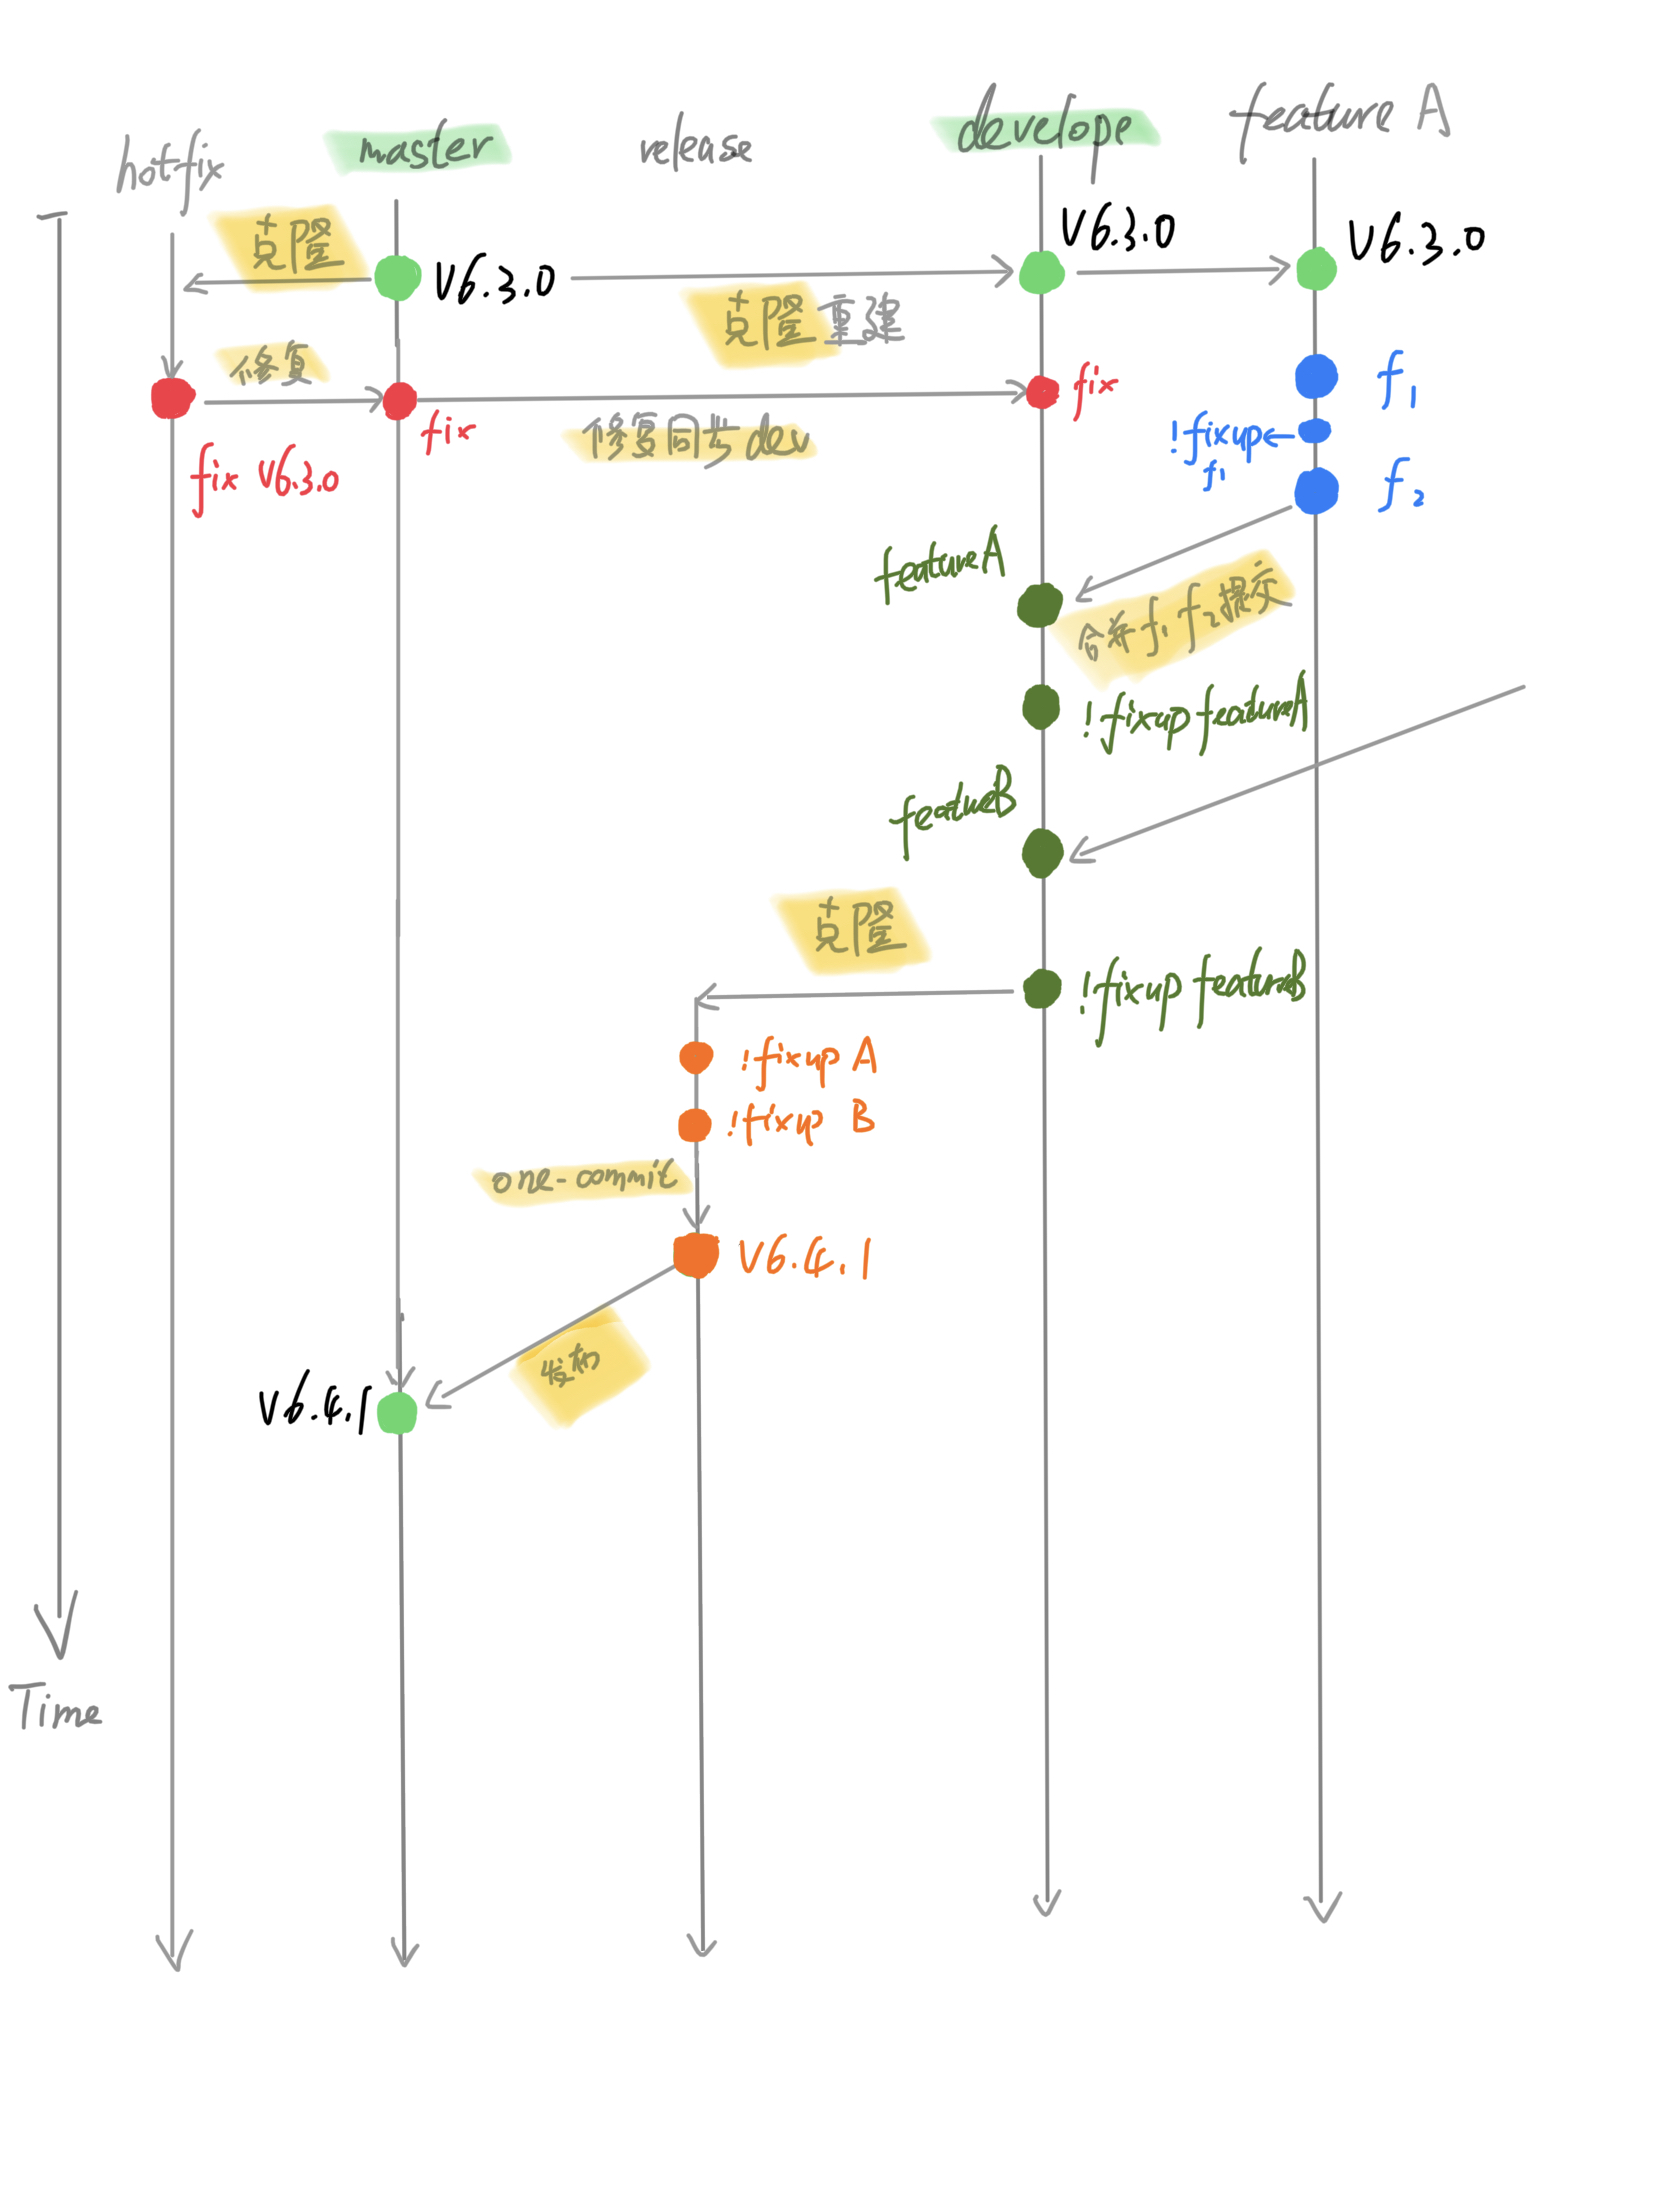 hotfix
master
release
develope
feature A
克隆
V6.3.0
V6.3.0
V6.3.0
克隆重建
修复
fix
fix
f1
!fixup
f1
修复同步dev
fix V6.3.0
f2
featureA
合并f1 f2提交
!fixup featureA
featureB
克隆
!fixup featureB
!fixup A
!fixup B
one-commit
V6.4.1
发布
V6.4.1
Time